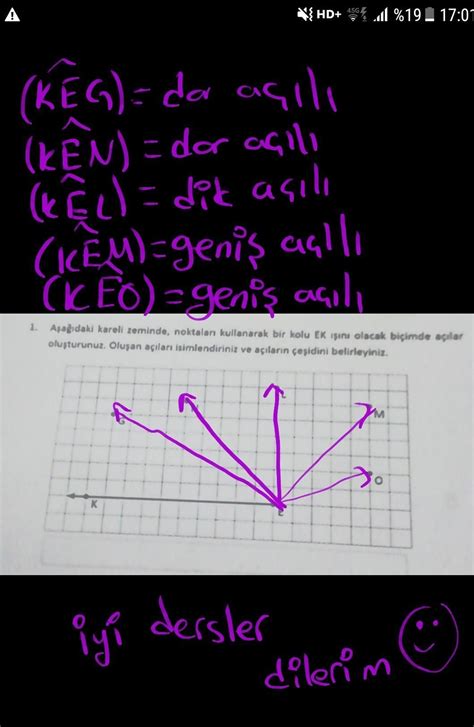 HD+ 4.5G %19 17:01
(KÊG) = dar açılı
(KÊN) = dar açılı
(KÊL) = dik açılı
(KÊM) = geniş açılı
(KÊO) = geniş açılı
1. Aşağıdaki kareli zeminde, noktaları kullanarak bir kolu EK ışını olacak biçimde açılar
oluşturunuz. Oluşan açıları isimlendiriniz ve açıların çeşidini belirleyiniz.
L
G
M
O
K
E
iyi dersler
dilerim